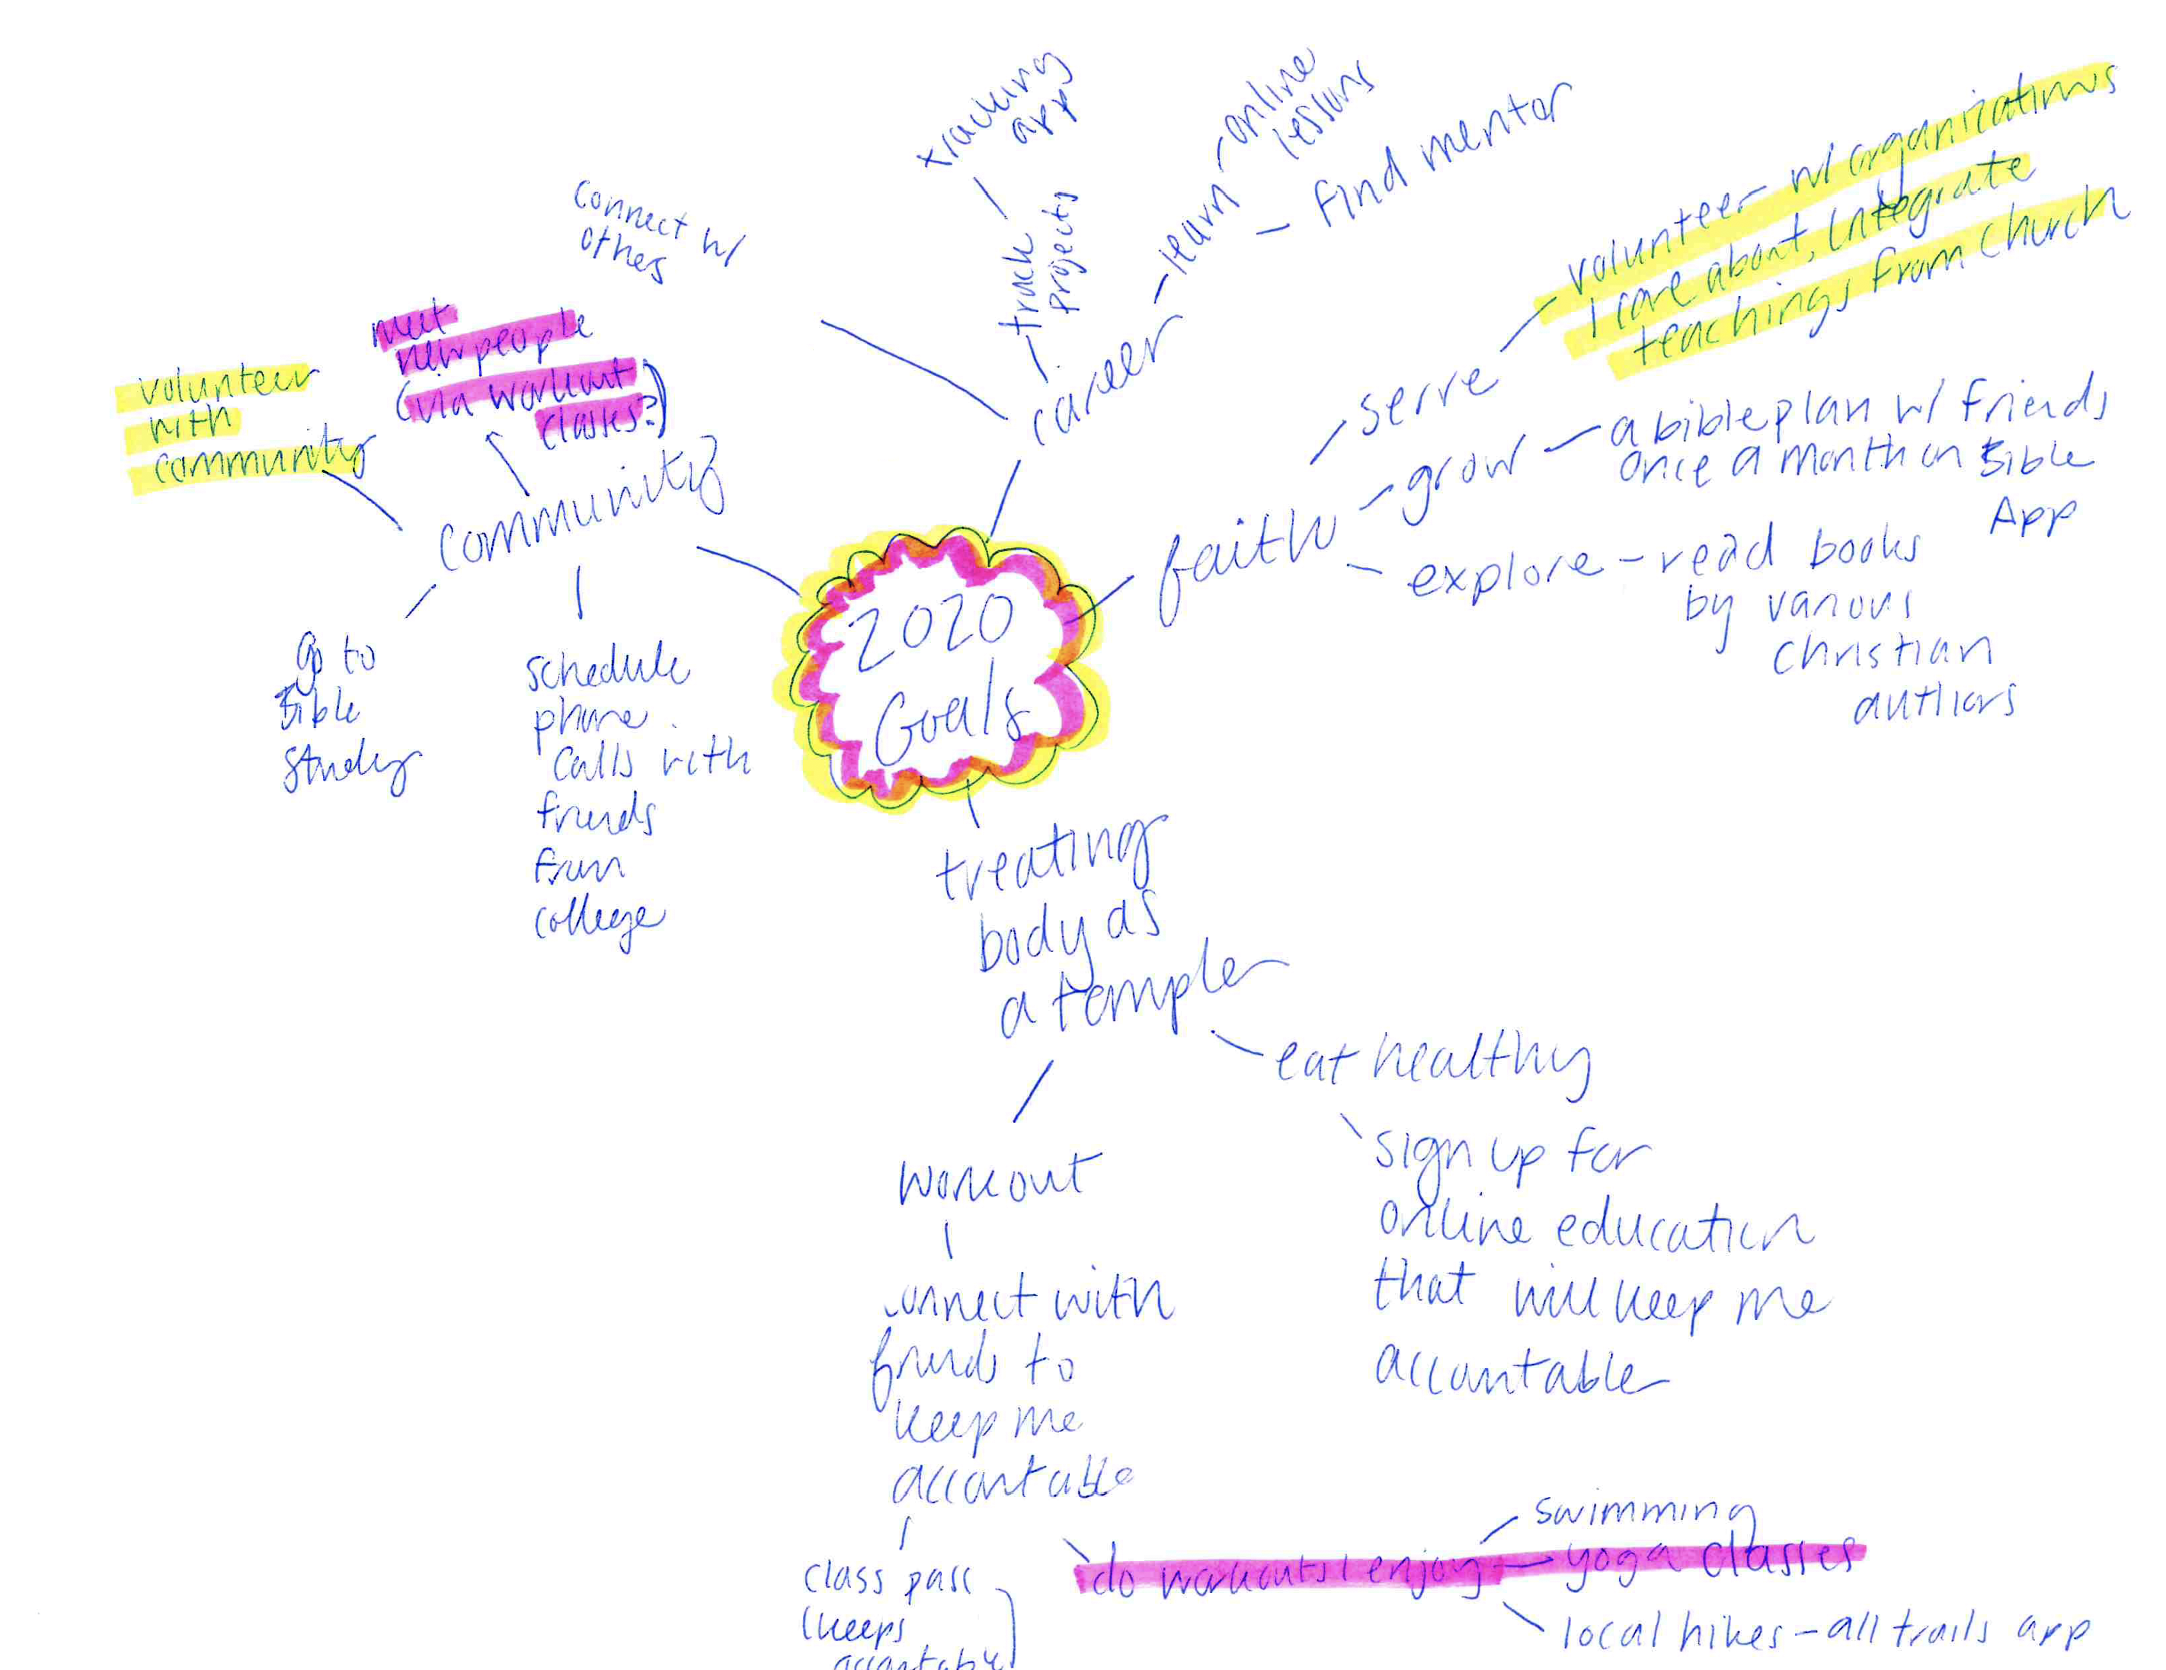 2020
Goals
career
track
projects
tracking
app
learn
online
lessons
find mentor
connect w/
others
faith
serve
volunteer w/ organizations
I care about, integrate
teachings from church
grow
a bible plan w/ friends
once a month on Bible
App
explore - read books
by various
christian
authors
community
meet
new people
(via workout
classes?)
volunteer
with
community
go to
Bible
study
schedule
phone
calls with
friends
from
college
treating
body as
a temple
eat healthy
sign up for
online education
that will keep me
accountable
workout
connect with
friends to
keep me
accountable
class pass
(keeps
accountable
do workouts I enjoy
swimming
yoga classes
local hikes - all trails app